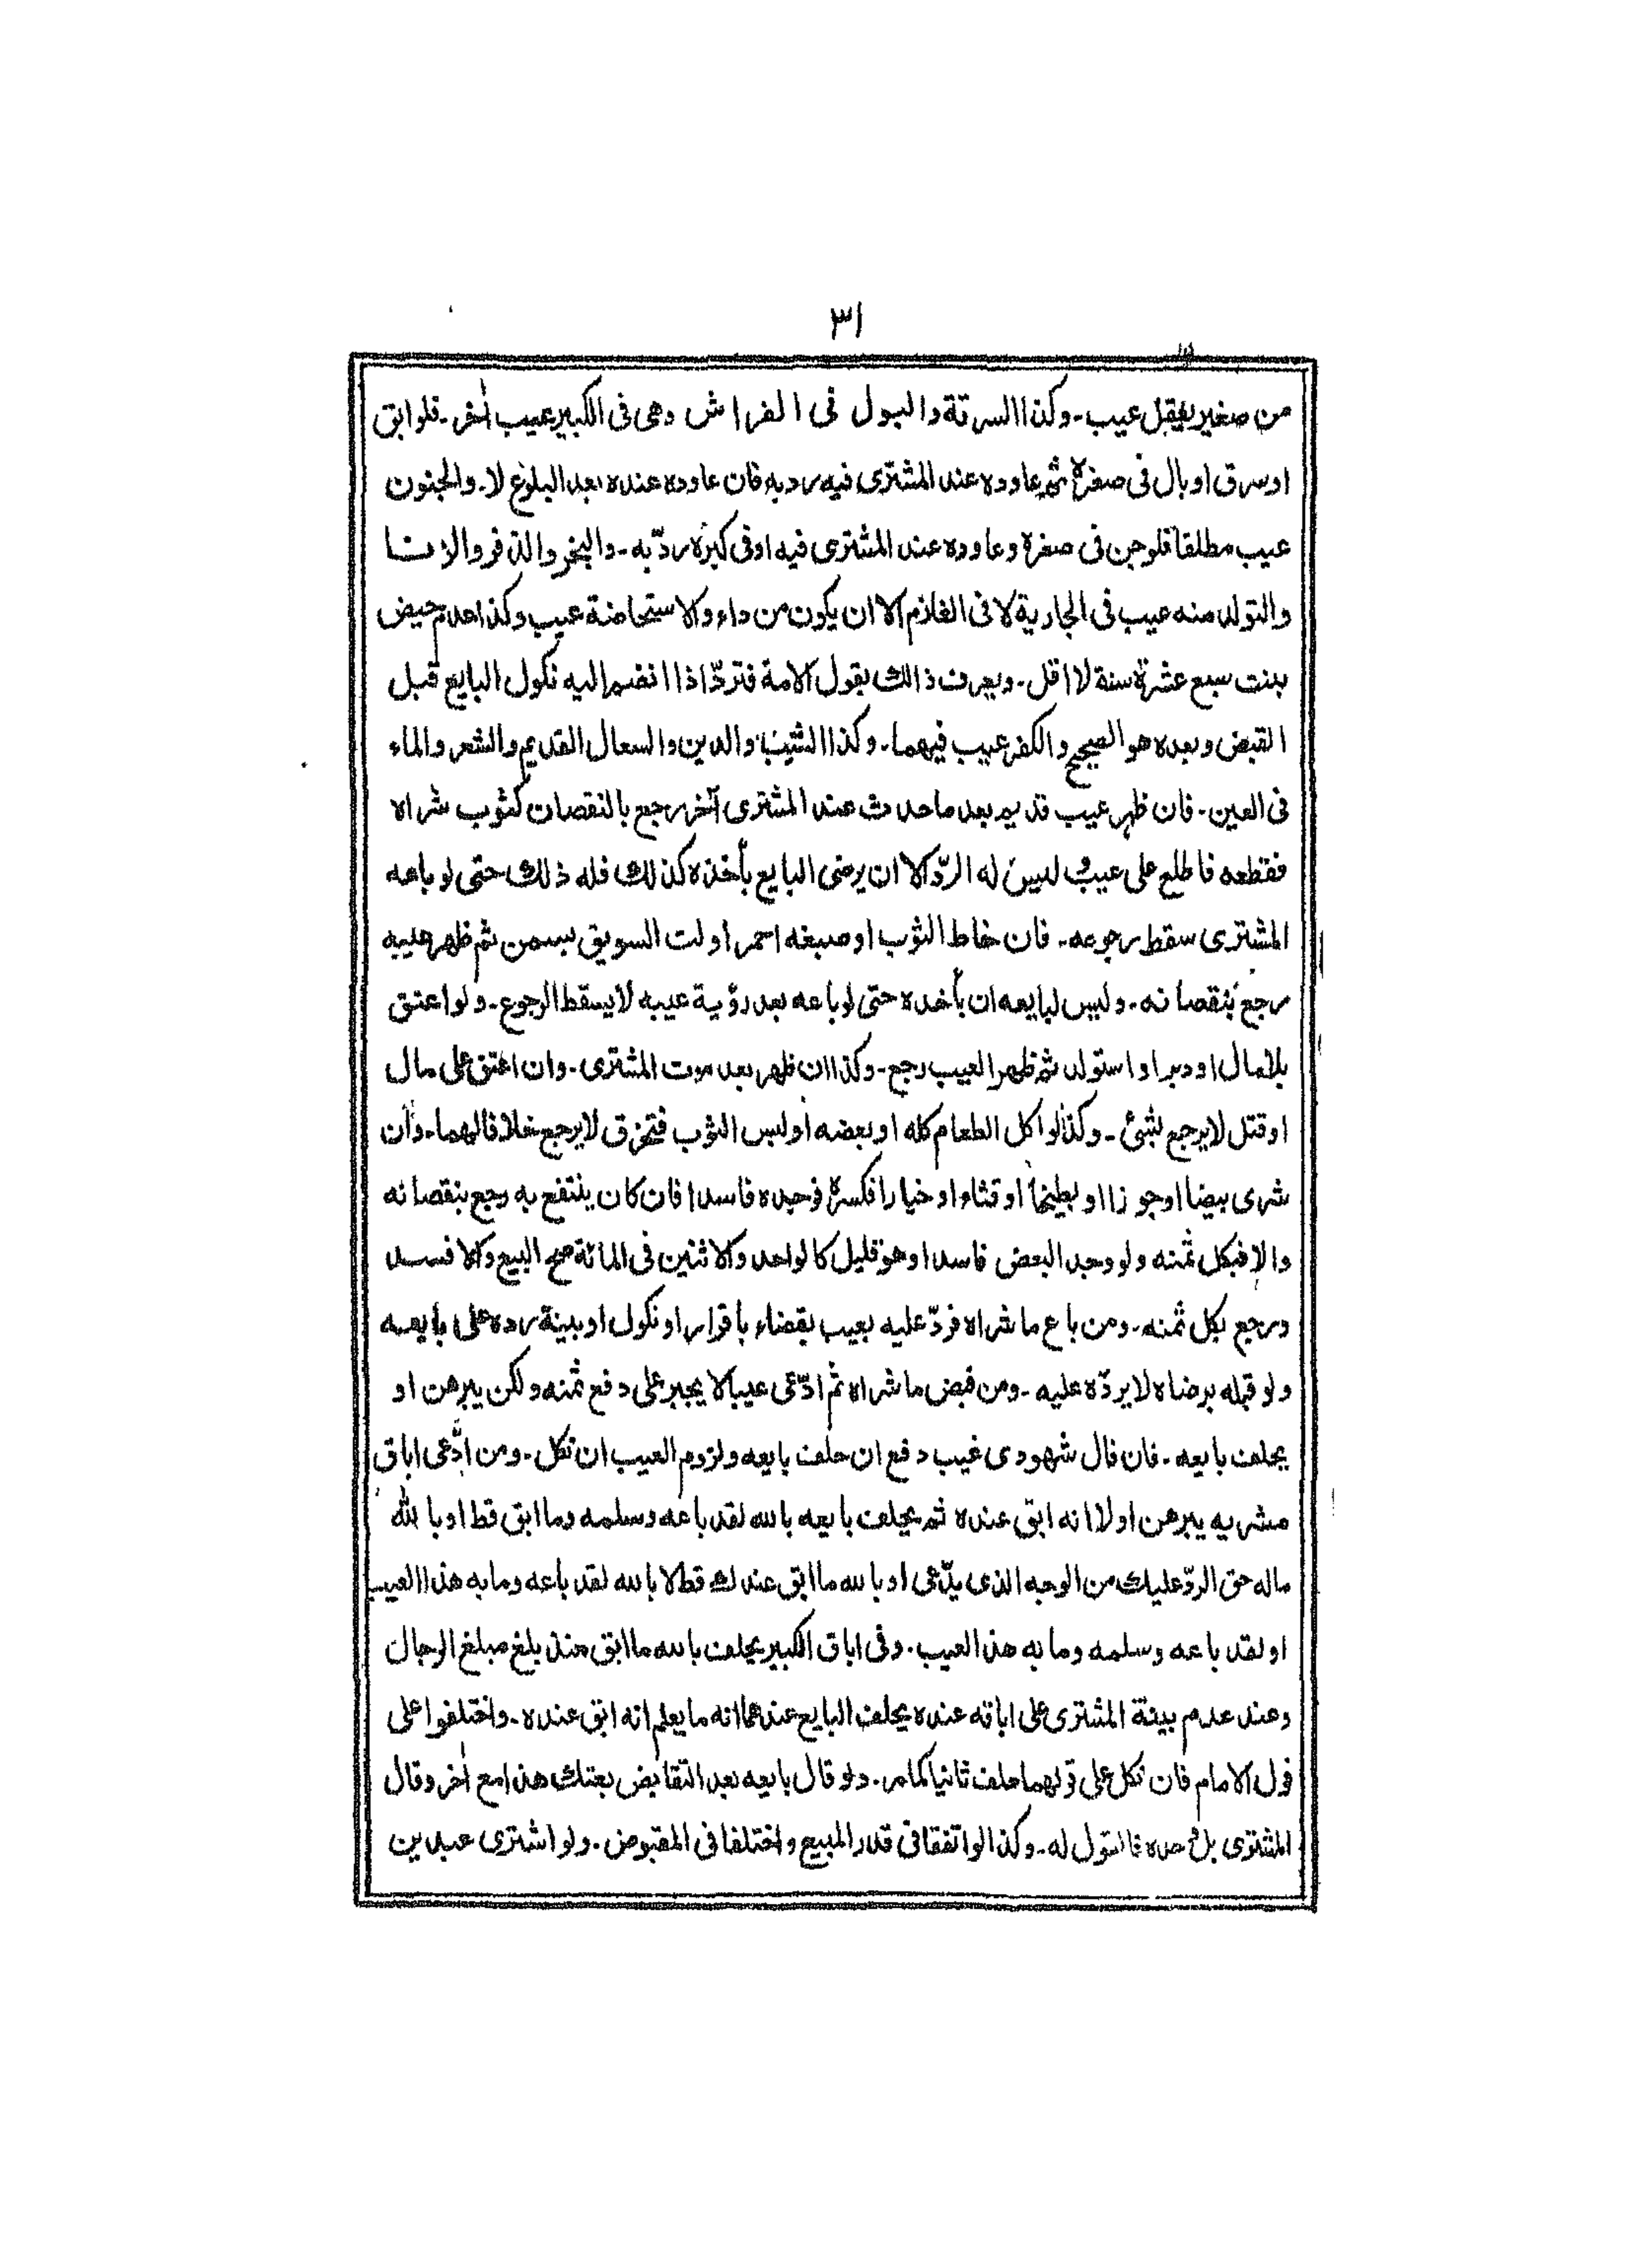 ٣١
من صغير يعقل عيب۔ وكذا السرقة والبول فى الفراش وهى فى الكبير عيب أخر۔ فلو ابق
او سرق او بال فى صغره ثم عاوده عند المشترى فيه رد به فان عاوده عنده بعد البلوغ لا۔ والجنون
عيب مطلقا فلو جن فى صغره وعاوده عند المشترى فيه او فى كبره ردّ به۔ والبخر والذفر والزنا
والتولد منه عيب فى الجارية لا فى الغلام الا ان يكون من داء والاستحاضة عيب وكذا عدم حيض
بنت سبع عشرة سنة لا اقل۔ ويعرف ذالك بقول الامة فتردّ اذا انضم اليه نكول البايع قبل
القبض وبعده هو الصحيح والكفر عيب فيهما۔ وكذا الشيب والدين والسعال القديم والشعر والماء
فى العين۔ فان ظهر عيب قديم بعد ما حدث عند المشترى آخر رجع بالنقصان كثوب شراه
فقطعه فاطلع على عيب وليس له الردّ الا ان يرضى البايع بأخذه كذلك فله ذلك حتى لو باعه
المشترى سقط رجوعه۔ فان خاط الثوب او صبغه احمر او لت السويق بسمن ثم ظهر عيبه
رجع بنقصانه۔ وليس لبايعه ان يأخذه حتى لو باعه بعد رؤية عيبه لا يسقط الرجوع۔ ولو اعتق
بلا مال او دبر او استولد ثم ظهر العيب رجع۔ وكذا ان ظهر بعد موت المشترى۔ وان اعتق على مال
او قتل لا يرجع بشئ۔ وكذا لو اكل الطعام كله او بعضه او لبس الثوب فتخرق لا يرجع خلافا لهما۔ وأن
شرى بيضا او جوزا او بطيخا او قثاء او خيارا فكسره فوجده فاسدا فان كان ينتفع به رجع بنقصانه
والا فبكل ثمنه ولو وجد البعض فاسدا وهو قليل كالواحد والاثنين فى المائة صح البيع والا فسد
ورجع بكل ثمنه۔ ومن باع ما شراه فردّ عليه بعيب بقضاء باقرار او نكول او ببينة رده على بايعه
ولو قبله برضاه لا يردّه عليه۔ ومن قبض ما شراه ثم ادّعى عيبا لا يجبر على دفع ثمنه ولكن يبرهن او
يحلف بايعه۔ فان قال شهودى غيب دفع ان حلف بايعه ولزوم العيب ان نكل۔ ومن ادّعى اباق
مشريه يبرهن اولا انه ابق عنده ثم يحلف بايعه بالله لقد باعه وسلمه وما ابق قط او بالله
ماله حق الردّ عليك من الوجه الذى يدّعى او بالله ما ابق عندك قط لا بالله لقد باعه وما به هذا العيب
او لقد باعه وسلمه وما به هذ العيب۔ وفى اباق الكبير يحلف بالله ما ابق منذ بلغ مبلغ الرجال
وعند عدم بينة المشترى على اباقه عنده يحلف البايع عندهما انه ما يعلم انه ابق عنده۔ واختلفوا على
قول الامام فان نكل على قولهما حلف ثانيا كما مر۔ ولو قال بايعه بعد التقابض بعتك هذا مع أخر وقال
المشترى بل وحده فالقول له۔ وكذا لو اتفقا فى قدر المبيع واختلفا فى المقبوض۔ ولو اشترى عبدين